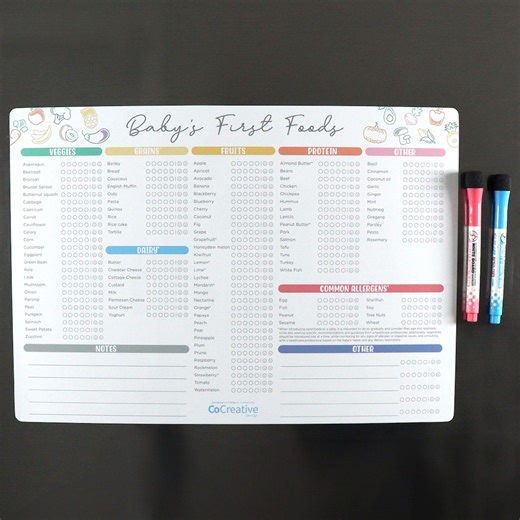 Baby's First Foods
VEGGIES
Asparagus
Beetroot
Broccoli
Brussel Sprout
Butternut Squash
Cabbage
Capsicum
Carrot
Cauliflower
Celery
Corn
Cucumber
Eggplant
Green Bean
Kale
Leek
Mushroom
Onion
Parsnip
Peas
Pumpkin
Spinach
Sweet Potato
Zucchini
GRAINS
Barley
Bread
Couscous
English Muffin
Oats
Pasta
Quinoa
Rice
Rice cake
Tortilla
DAIRY
Butter
Cheddar Cheese
Cottage Cheese
Custard
Milk
Parmesan Cheese
Sour Cream
Yoghurt
FRUITS
Apple
Apricot
Avocado
Banana
Blackberry
Blueberry
Cherry
Coconut
Fig
Grape
Grapefruit*
Honeydew melon
Kiwifruit
Lemon*
Lime*
Lychee
Mandarin*
Mango
Nectarine
Orange*
Papaya
Peach
Pear
Pineapple
Plum
Prune
Raspberry
Rockmelon
Strawberry*
Tomato
Watermelon
PROTEIN
Almond Butter*
Beans
Beef
Chicken
Chickpeas
Hummus
Lamb
Lentils
Peanut Butter*
Pork
Salmon
Tofu
Tuna
Turkey
White Fish
OTHER
Basil
Cinnamon
Coconut oil
Garlic
Ginger
Mint
Nutmeg
Oregano
Parsley
Pesto
Rosemary
COMMON ALLERGENS*
Egg
Fish
Peanut
Sesame
Shellfish
Soy
Tree Nuts
Wheat
NOTES
OTHER
CoCreative